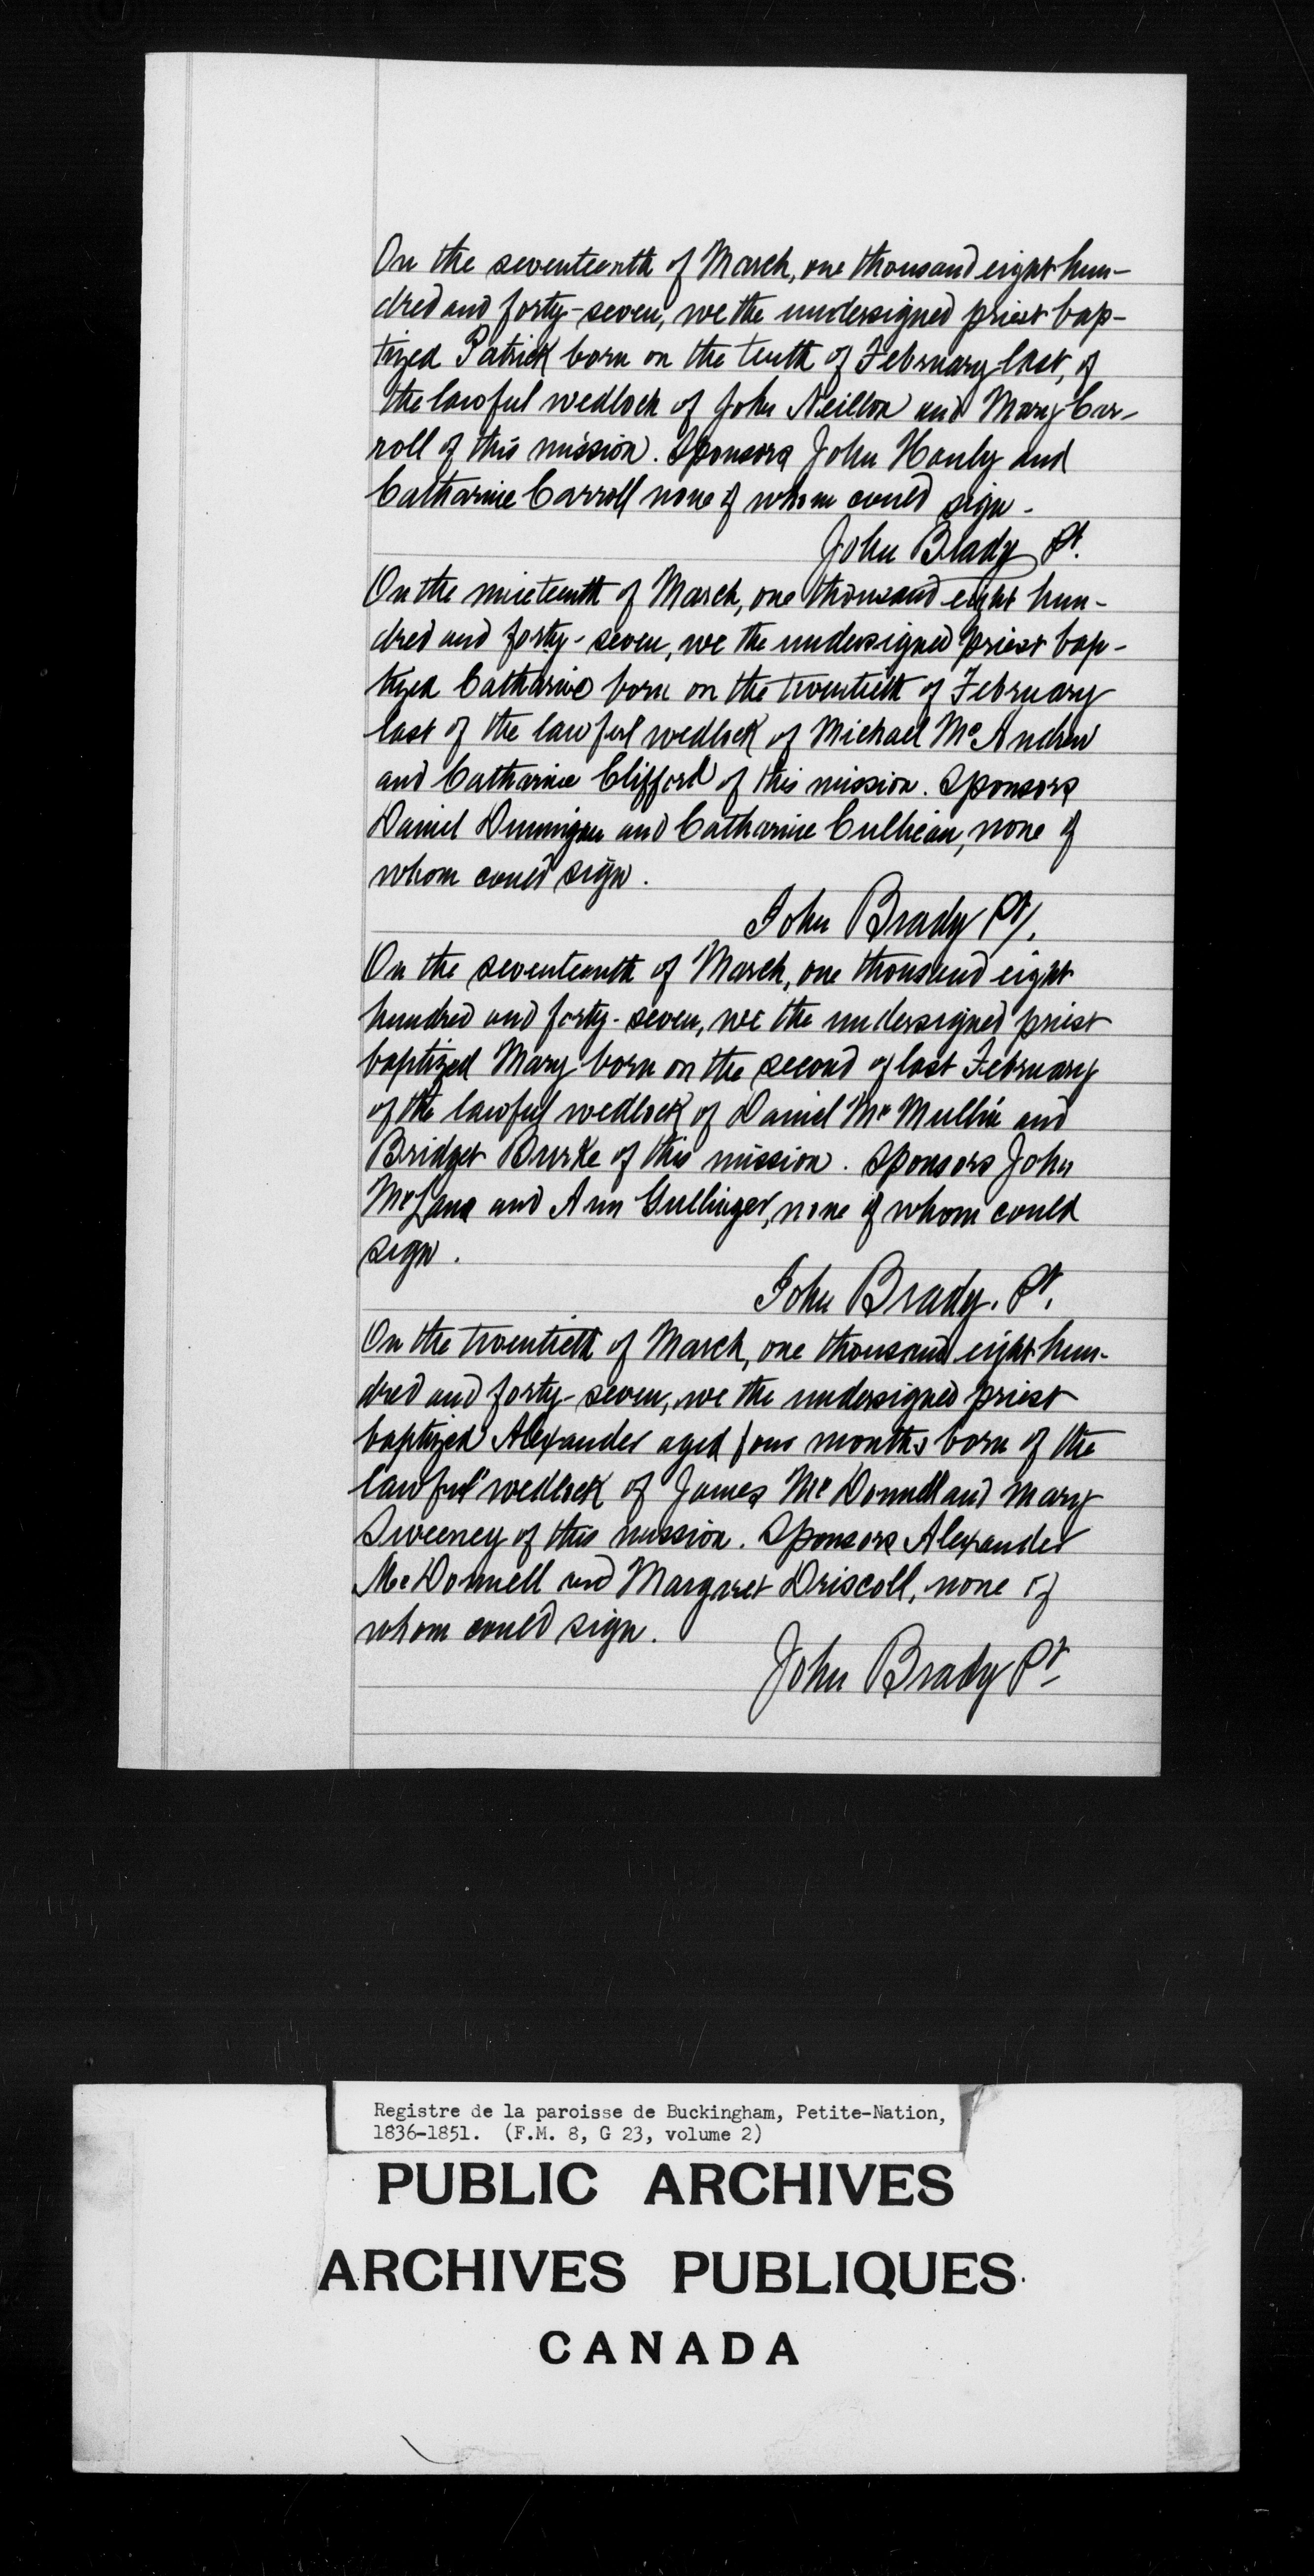 On the seventeenth of March, one thousand eight hun-
dred and forty-seven, we the undersigned priest bap-
tized Patrick born on the tenth of February last, of
the lawful wedlock of John Neillon and Mary Car-
roll of this mission. Sponsors John Hanly and
Catharine Carroll none of whom could sign.
John Brady Pt.
On the nineteenth of March, one thousand eight hun-
dred and forty-seven, we the undersigned priest bap-
tized Catharine born on the twentieth of February
last of the lawful wedlock of Michael McAndrew
and Catharine Clifford of this mission. Sponsors
Daniel Dunnigan and Catharine Culhean, none of
whom could sign.
John Brady Pt.
On the seventeenth of March, one thousand eight
hundred and forty-seven, we the undersigned priest
baptized Mary born on the second of last February
of the lawful wedlock of Daniel McMullin and
Bridget Burke of this mission. Sponsors John
McLane and Ann Gullinger, none of whom could
sign.
John Brady. Pt.
On the twentieth of March, one thousand eight hun-
dred and forty-seven, we the undersigned priest
baptized Alexander aged four months born of the
lawful wedlock of James McDonnell and Mary
Sweeney of this mission. Sponsors Alexander
McDonnell and Margaret Driscoll, none of
whom could sign.
John Brady Pt
Registre de la paroisse de Buckingham, Petite-Nation,
1836-1851. (F.M. 8, G 23, volume 2)
PUBLIC ARCHIVES
ARCHIVES PUBLIQUES
CANADA